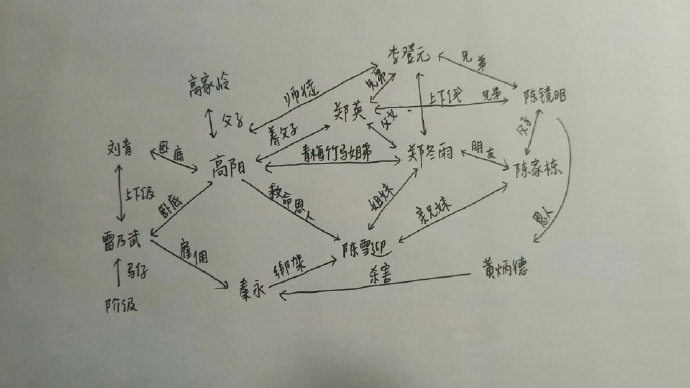 李登元
兄弟
高家怆
师徒
兄弟
郑英
上下线
兄弟
陈镜明
父子
养父子
父女
父子
刘青
卧底
高阳
青梅竹马姐弟
郑冬雨
朋友
陈家栋
上下级
卧底
救命恩人
姐妹
亲兄妹
恩人
雷乃武
雇佣
陈雪迎
马仔
绑架
杀害
黄炳德
秦永
阶级